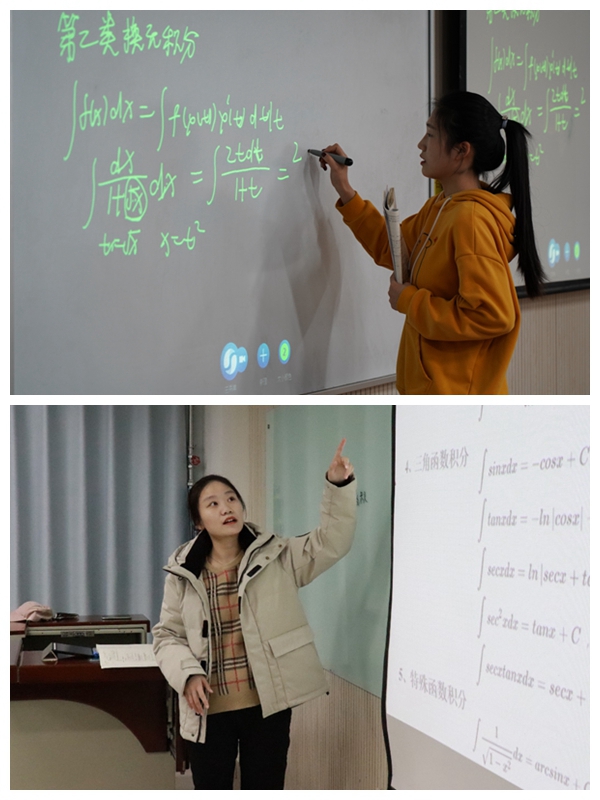 第二类换元积分
∫f(x)dx = ∫f(φ(t))φ'(t)dt
∫dx/1+√x dx = ∫2tdt/1+t = 2
t=√x x=t²
4. 三角函数积分
∫sinxdx = -cosx + C
∫tanxdx = -ln|cosx|
∫secxdx = ln|secx + ta
∫sec²xdx = tanx + C
∫secxtanxdx = secx +
5. 特殊函数积分
∫1/√1-x² dx = arcsinx + C